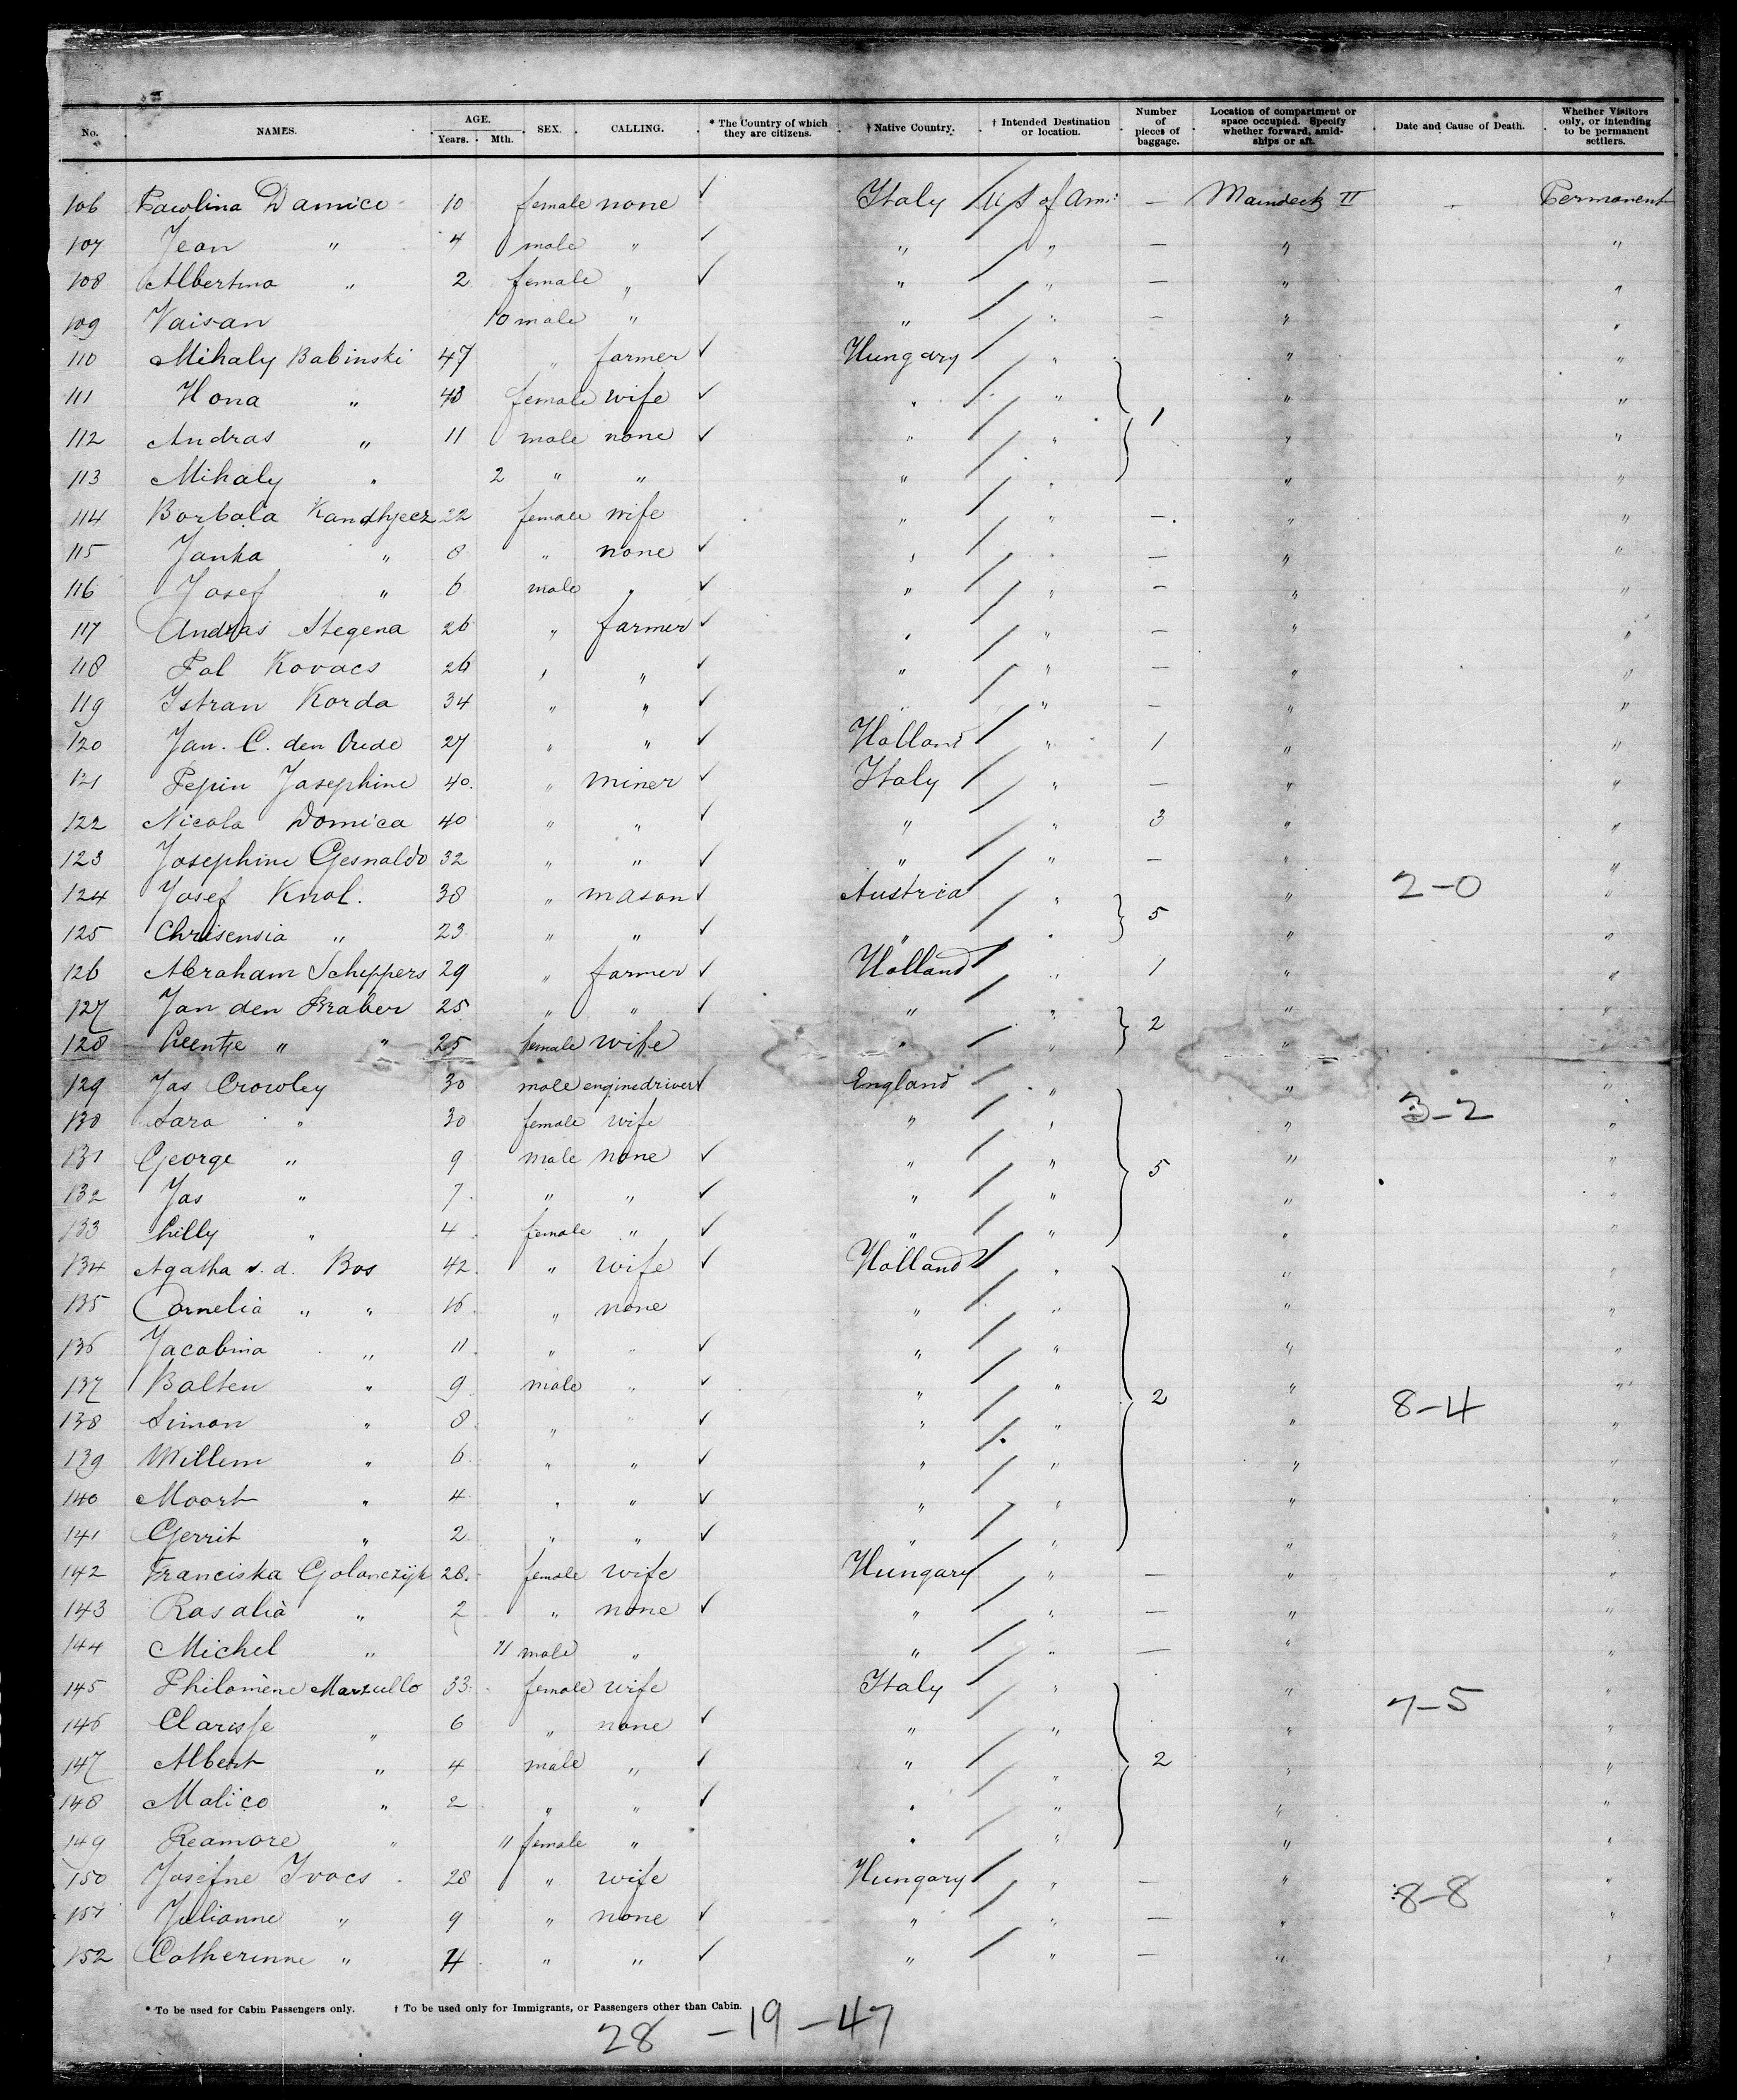 No. NAMES. AGE. Years. Mth. SEX. CALLING. * The Country of which they are citizens. † Native Country. † Intended Destination or location. Number of pieces of baggage. Location of compartment or space occupied. Specify whether forward, amidships or aft. Date and Cause of Death. Whether Visitors only, or intending to be permanent settlers.
106 Pawlina Damico 10 female none ✓ Italy U S of Am: — Maindeck II Permanent
107 Jean " 4 male " ✓ " " — " "
108 Albertina " 2 female " ✓ " " — " "
109 Vaisan 10 male " " " — " "
110 Mihaly Babinski 47 " farmer ✓ Hungary " " "
111 Ilona " 43 female wife ✓ " " 1 " "
112 Andras " 11 male none ✓ " " " "
113 Mihaly " 2 " " " " " "
114 Borbala 22 female wife " " — " "
115 Janka " 8 " none ✓ " " — " "
116 Josef " 6 male " ✓ " " — " "
117 Andras Stegena 26 " farmer ✓ " " — " "
118 Pal Kovacs 26 " " ✓ " " — " "
119 Istran Korda 34 " " ✓ " " — " "
120 Jan. C. den Oude 27 " " ✓ Holland " 1 " "
121 Pepin Josephine 40 " miner ✓ Italy " — " "
122 Nicola Domica 40 " " ✓ " " 3 " "
123 Josephine Gesnaldo 32 " " ✓ " " — " "
124 Josef Knol. 38 " mason ✓ Austria " " 2-0 "
125 Chrisensia " 23 " " ✓ " " 5 " "
126 Abraham Scheppers 29 " farmer ✓ Holland " 1 " "
127 Jan den Braber 25 " " ✓ " " 2 " "
128 Leentje " " 25 female wife " " " "
129 Jas Crowley 30 male enginedriver ✓ England " " "
130 Sara " 30 female wife " " " 3-2 "
131 George " 9 male none ✓ " " 5 " "
132 Jas " 7 " " ✓ " " " "
133 Lilly " 4 female " ✓ " " " "
134 Agatha v. d. Bos 42 " wife ✓ Holland " " "
135 Cornelia " " 16 " none " " " "
136 Jacobina " 11 " " ✓ " " " "
137 Balten " 9 male " ✓ " " 2 " 8-4 "
138 Simon " 8 " " ✓ " " " "
139 Willem " 6 " " ✓ " " " "
140 Moort " 4 " " ✓ " " " "
141 Gerrit " 2 " " ✓ " " " "
142 Franciska Golanczijk 28 female wife Hungary " — " "
143 Rosalia " 2 " none ✓ " " — " "
144 Michel " 11 male " " " — " "
145 Philomène Marzullo 33 female wife Italy " " 7-5 "
146 Clarisse " 6 " none ✓ " " " "
147 Albert " 4 male " ✓ " " 2 " "
148 Malico " 2 " " ✓ " " " "
149 Reamore " 11 female " " " " "
150 Josefne Ivacs 28 " wife Hungary " — " 8-8 "
151 Julianne " 9 " none ✓ " " — " "
152 Catherinne " 4 " " ✓ " " — " "
* To be used for Cabin Passengers only. † To be used only for Immigrants, or Passengers other than Cabin.
28 - 19 - 47